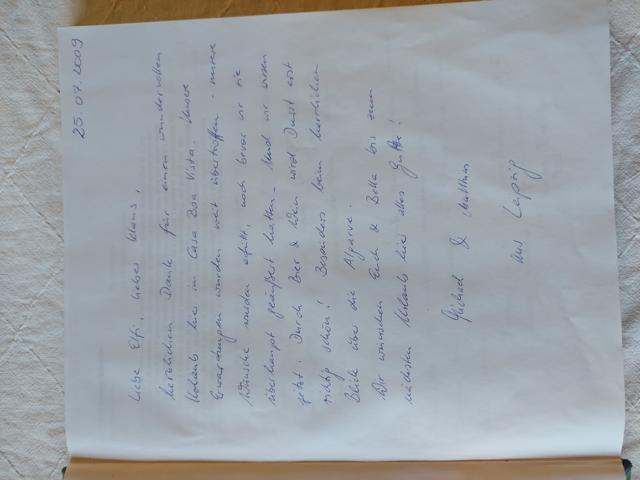 25.07.2009
Liebe Elfi, lieber Klaus,
herzlichen Dank für einen wundervollen
Urlaub hier in Casa Boa Vista. Unsere
Erwartungen wurden weit übertroffen - unsere
Wünsche wurden erfüllt, noch bevor wir sie
überhaupt geäußert hatten. Und wir wissen
jetzt: Durch Bier & Wein wird Durst erst
richtig schön! Besonders beim herrlichen
Blick über die Algarve.
Wir wünschen Euch & Bella bis zum
nächsten Urlaub hier alles Gute!
Michael & Matthias
aus Leipzig